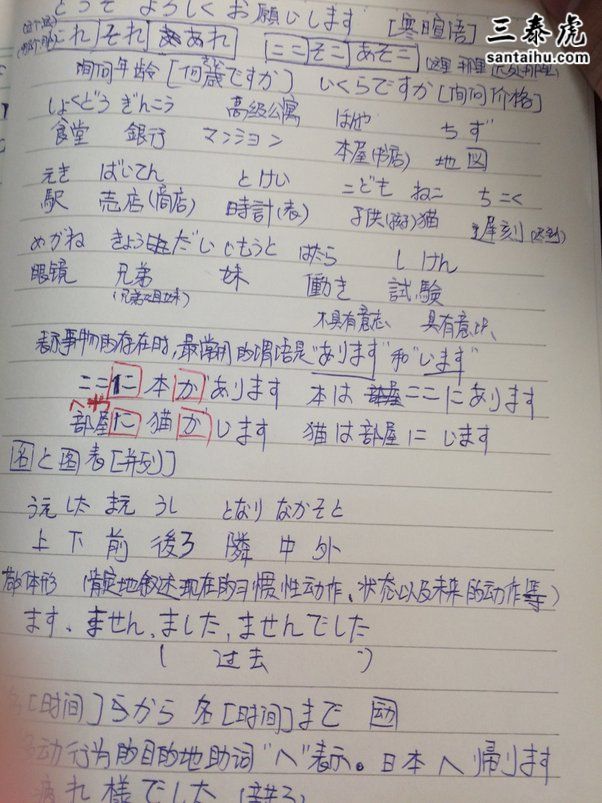 三泰虎
santaihu.com
どうぞ よろしく お願いします [寒暄语]
これ それ あれ ここ そこ あそこ
询问年龄 [何歳ですか] いくらですか [询问价格]
しょくどう ぎんこう 高级公寓 ほんや ちず
食堂 銀行 マンション 本屋(书店) 地図
えき ばいてん とけい こども ねこ ちこく
駅 売店(商店) 時計(表) 子供(孩子) 猫 遅刻(迟到)
めがね きょうだい いもうと はたら しけん
眼镜 兄弟 妹 働き 試験
(兄弟姐妹)
不具有意志、 具有意识、
表示事物的存在时,最常用的谓语是"あります"和"います"
ここに 本 が あります 本は ここ にあります
へや
部屋に 猫が います 猫は部屋に います
名と名表[并列]
うえ した まえ うし となり なか そと
上 下 前 後ろ 隣 中 外
敬体形 (肯定地叙述现在的习惯性动作、状态以及未来的动作等)
ます、ません、ました、ませんでした
( 过去 )
名[时间]から 名[时间]まで 动
动行为的目的地助词"へ"表示。日本へ帰ります
疲れ様でした